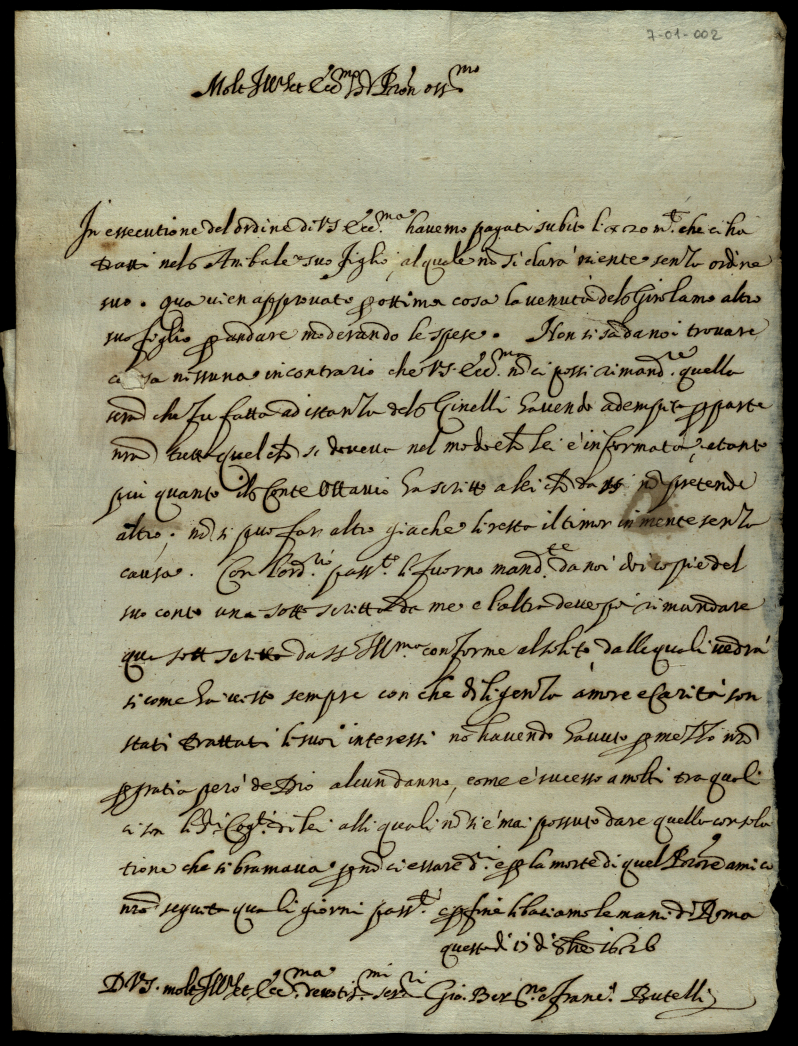 7-01-002
Molt Ill.re et Ecc.mo Sr Pron oss.mo
In essecutione del ordine di VS Ecc.ma havemo pagati subito li 20 m.ta che ci ha
tratti nel s.r Anibale suo figlio, al quale nō si dara niente senza ordine
suo. qua vien approvato p ottima cosa la venuta del s.r Girolamo altro
suo figlio p andare moderando le spese. Non si sa da noi trovare
cosa nissuna in contrario che VS. Ecc.ma nō ci possi rimand.re quella
che fu fatta ad istanza del s.r Ginelli havendo adempito p parte
nrā tutto quel che si doveva nel modo che lei é informata, e tanto
piu quanto il s.r Conte Ottavio ha scritto a lei che da nō pretende
altro. nō si puo far altro gia che li resta il timor in mente senza
causa. Con l'ord.rio pass.to li furno mand.te da noi doi copie del
suo conto una sotto scritta da me e l'altra deve poi rimandare
qua sott scritta da VS Ill.ma conforme al solito dalle quali vedrá
si come ha visto sempre con che diligenza amore e Caritá son
stati trattati li suoi interessi nō havendo havuto p mezzo nrō
p gratia peró de Dio alcun danno, come é sucesso a molti tra quali
ci son li di lei alli quali nō si é mai possuto dare quella consola
tione che si bramava p nō ci essare e p la morte di quel amico
nrō seguita qua li giorni pass.ti e p fine li baciamo le mani di Roma
questo di 17 di 8bre 1626
D VS. molt Ill.re et Ecc.ma devotis.mi ser.ri Gio. Ber.no e Franc.o Butelli